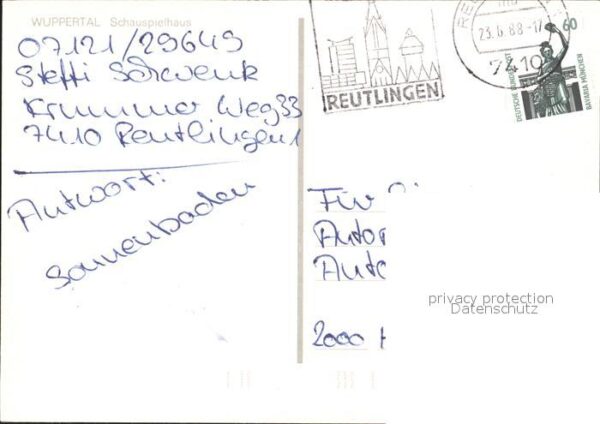 WUPPERTAL Schauspielhaus
07121/29649
Steffi Schwenk
Krummer Weg 33
7410 Reutlingen 1
Antwort:
Sonnenbaden
REUTLINGEN
23.6.88-17
7410
60
DEUTSCHE BUNDESPOST
BAVARIA MÜNCHEN
Für
Autor
Aute
2000 H
privacy protection
Datenschutz